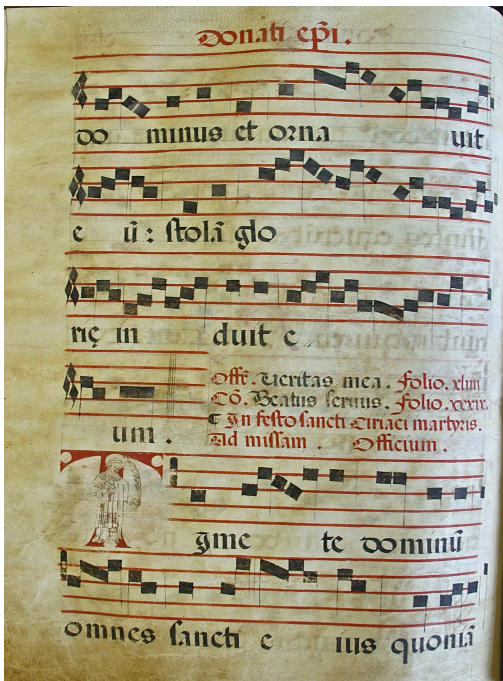 Donati ep̄i.
do minus et orna uit
e ū : stolā glo
rię in duit e
um .
Offē. Ueritas mea. Folio. xliiii
Cō. Beatus seruus. Folio. xxxix.
In festo sancti Ciriaci martyris.
Ad missam . Officium .
Tgme te dominū
omnes sancti e ius quoniā